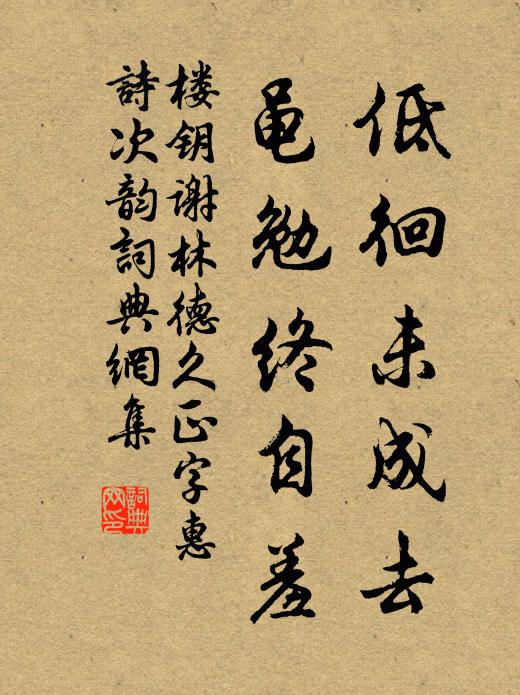 低徊未成去
黾勉终自羞
楼钥谢林德久正字惠
詩次韵詞典網集
詞典
网印